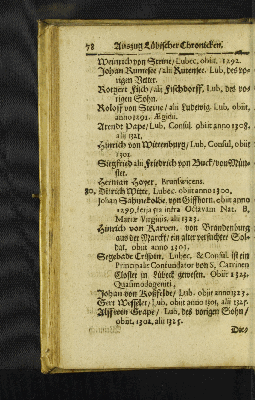 78 Auszug Lübischer Chronicken.
Weinrich von Steine/ Lubec. obiit. 1292.
Johan Rumesoe/ alii Rutensee. Lub. des vo-
rigen Vetter.
Rotgert Fisch/ alii Fischdorff, Lub. des vo-
rigen Sohn.
Roloff von Steine/ alii Ludewig. Lub. obiit,
anno 1291. Ægidii.
Arendt Pape/ Lub. Consul. obiit anno 1308.
alii 1321.
Hinrich von Wittenburg/ Lub. Consul, obiit
1301.
Siegfried alii Friedrich von Buck/ von Mün-
ster.
Herman Hoyer, Brunsvicens.
80. Ditrich Witte, Lubec. obiit anno 1300.
Johan von Giffhorn. obiit anno
1299. feria infra Octavam Nat. B.
Mariæ Virginis, alii 1323.
Hinrich von Karven. von Brandenburg
aus der Marck/ ein alter versuchter Sol-
dat, obiit anno 1303.
Segebade Crispin. Lubec. & Consul. ist ein
Principalis Confundator von S. Catrinen
Closter in Lübeck gewesen. Obiit 1323.
Quasimodogeniti,
Johan von Koßfelde/ Lub. obiit anno 1323.
Gert Wesseler/ Lub, obiit anno 1301, alii 1325.
Alffwen Grape/ Lub, des vorigen Sohn/
obiit, 1302, alii 1325.